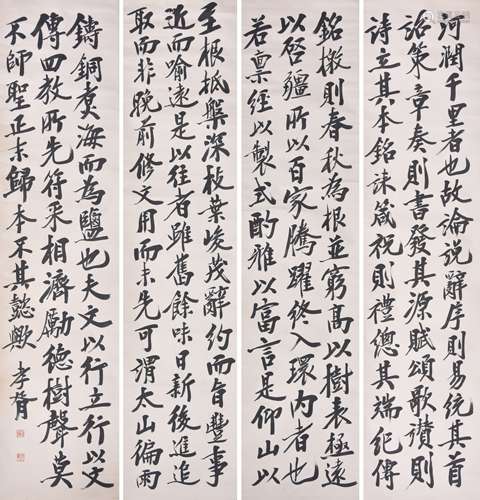 河潤千里者也故論說辭序則易統其首
詔策章奏則書發其源賦頌歌讚則
詩立其本銘誄箴祝則禮總其端紀傳
銘檄則春秋為根並窮高以樹表極遠
以啓疆所以百家騰躍終入環內者也
若稟經以製式酌雅以富言是仰山以
至根柢槃深枝葉峻茂辭約而旨豐事
近而喻遠是以往者雖舊餘味日新後進追
取而非晚前修文用而未先可謂太山徧雨
鑄銅煑海而為鹽也夫文以行立行以文
傳四教所先符采相濟勵德樹聲莫
不師聖正末歸本不其懿歟 孝胥